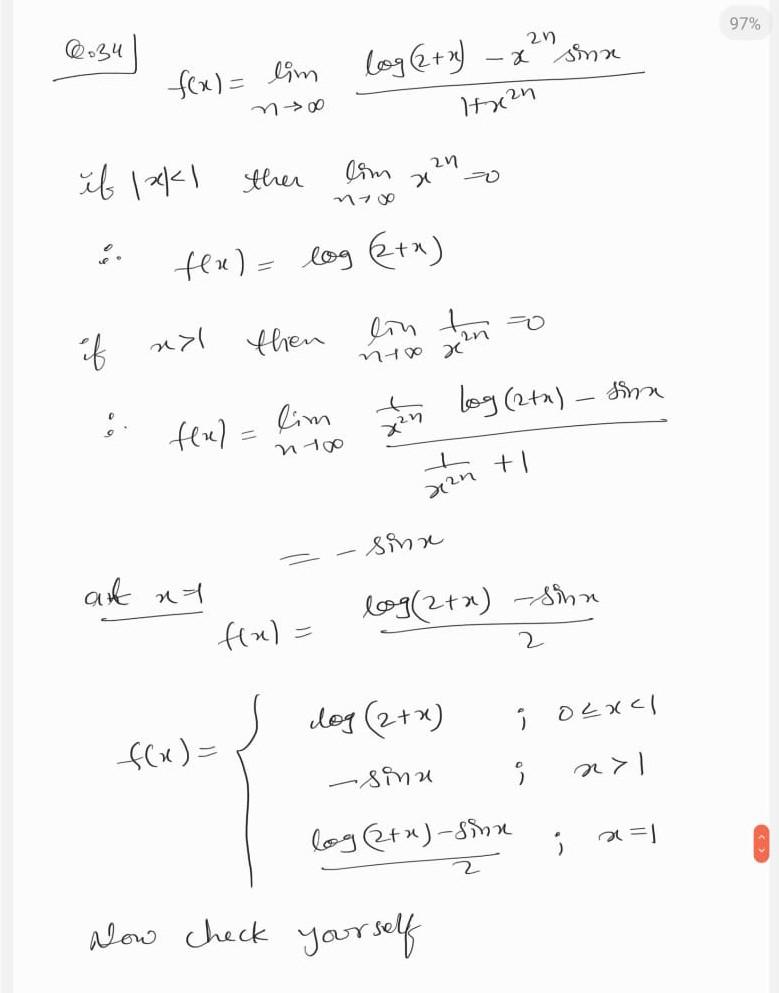 97%
Q.34
f(x) = lim n→∞ (log(2+x) - x^2n sinx) / (1+x^2n)
if |x|<1 then lim n→∞ x^2n =0
∴ f(x) = log (2+x)
if x>1 then lim n→∞ 1/x^2n =0
∴ f(x) = lim n→∞ (1/x^2n log(2+x) - sinx) / (1/x^2n + 1)
= - sinx
at x=1
f(x) = (log(2+x) - sinx) / 2
f(x) = {
log (2+x) ; 0≤x<1
-sinx ; x>1
(log(2+x)-sinx) / 2 ; x=1
Now check yourself